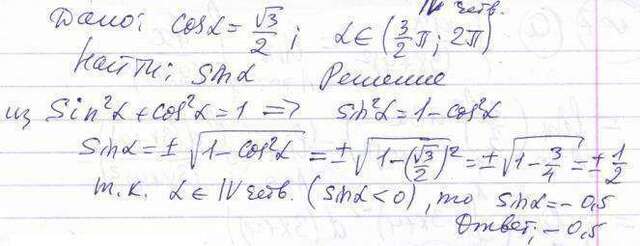 IV четв.
Дано: cosα = √3/2 ; α ∈ (3/2 π ; 2π)
Найти: sinα Решение
из Sin²α + cos²α = 1 => sin²α = 1 - cos²α
Sinα = ± √(1 - cos²α) = ± √(1 - (√3/2)²) = ± √(1 - 3/4) = ± 1/2
т.к. α ∈ IV четв. (sinα < 0), то sinα = - 0,5
Ответ: - 0,5